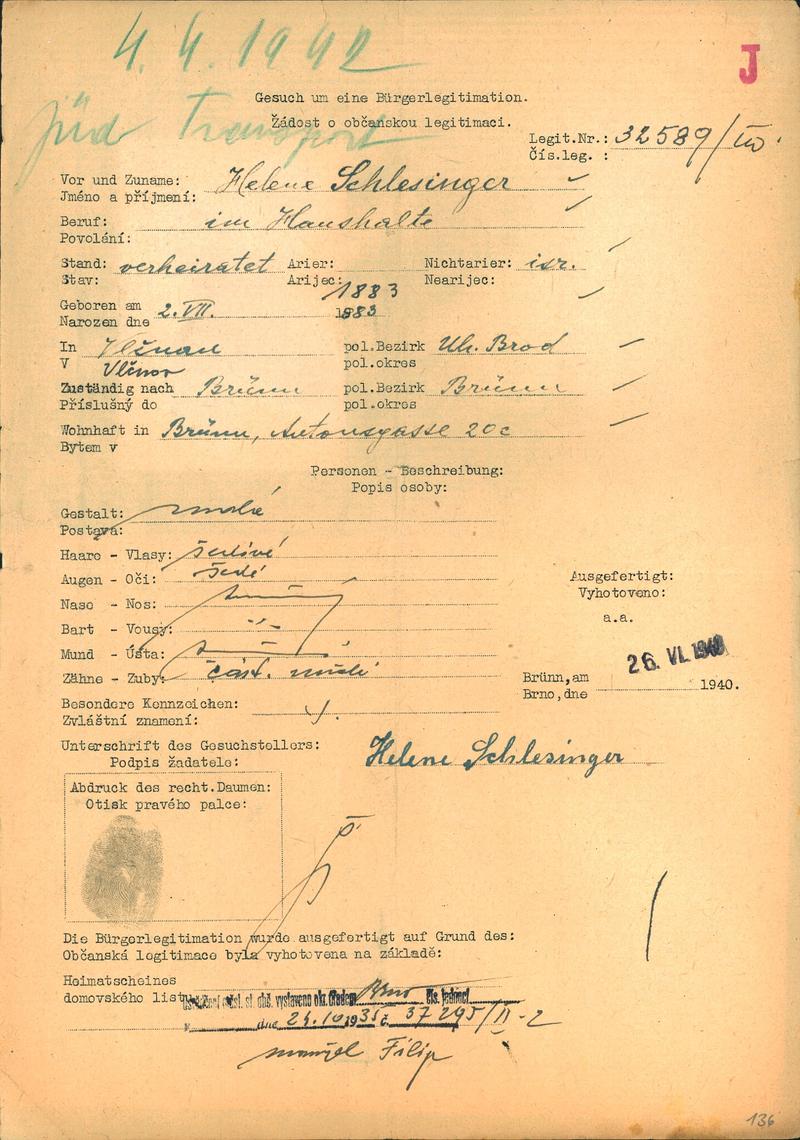 4. 4. 1942
J
jüd Transport
Gesuch um eine Bürgerlegitimation.
Žádost o občanskou legitimaci.
Legit.Nr.: 32589/
Čís.leg. :
Vor und Zuname: Helene Schlesinger
Jméno a příjmení:
Beruf: im Haushalte
Povolání:
Stand: verheiratet Arier: Nichtarier: isr.
Stav: Arijec: Nearijec:
1883
Geboren am 2. VII. 1883
Narozen dne
In Vlčnau pol.Bezirk Uh. Brod
V Vlčnov pol.okres
Zuständig nach Brünn pol.Bezirk Brünn
Příslušný do pol.okres
Wohnhaft in Brünn, Antonsgasse 20c
Bytem v
Personen - Beschreibung:
Popis osoby:
Gestalt: malá
Postava:
Haare - Vlasy: šedivé
Augen - Oči: šedé
Nase - Nos:
Bart - Vousy:
Mund - Ústa:
Zähne - Zuby: část.
Ausgefertigt:
Vyhotoveno:
a.a.
26. VI. 1940
Brünn,am
Brno,dne 1940.
Besondere Kennzeichen:
Zvláštní znamení:
Unterschrift des Gesuchstellers: Helene Schlesinger
Podpis žadatele:
Abdruck des recht.Daumen:
Otisk pravého palce:
Die Bürgerlegitimation wurde ausgefertigt auf Grund des:
Občanská legitimace byla vyhotovena na základě:
Heimatscheines
domovského listu
st. obč. vystaveno okr. úřadem Brno čís. jednací
dne 24.10.1935 č. 37295/II-2
manžel Filip
136